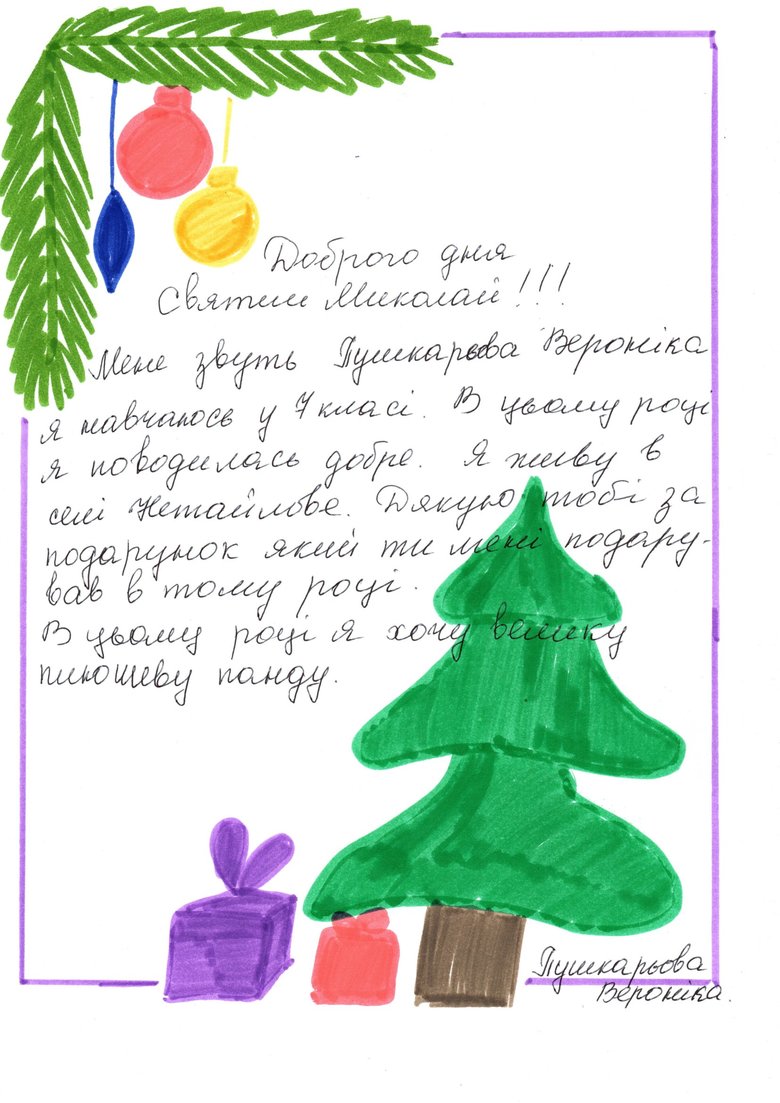 Доброго дня
Святий Миколай!!!
Мене звуть Пушкарьова Вероніка
я навчаюсь у 7 класі. В цьому році
я поводилась добре. Я живу в
селі Нетайлове. Дякую тобі за
подарунок який ти мені подару-
вав в тому році.
В цьому році я хочу велику
плюшеву панду.
Пушкарьова
Вероніка.